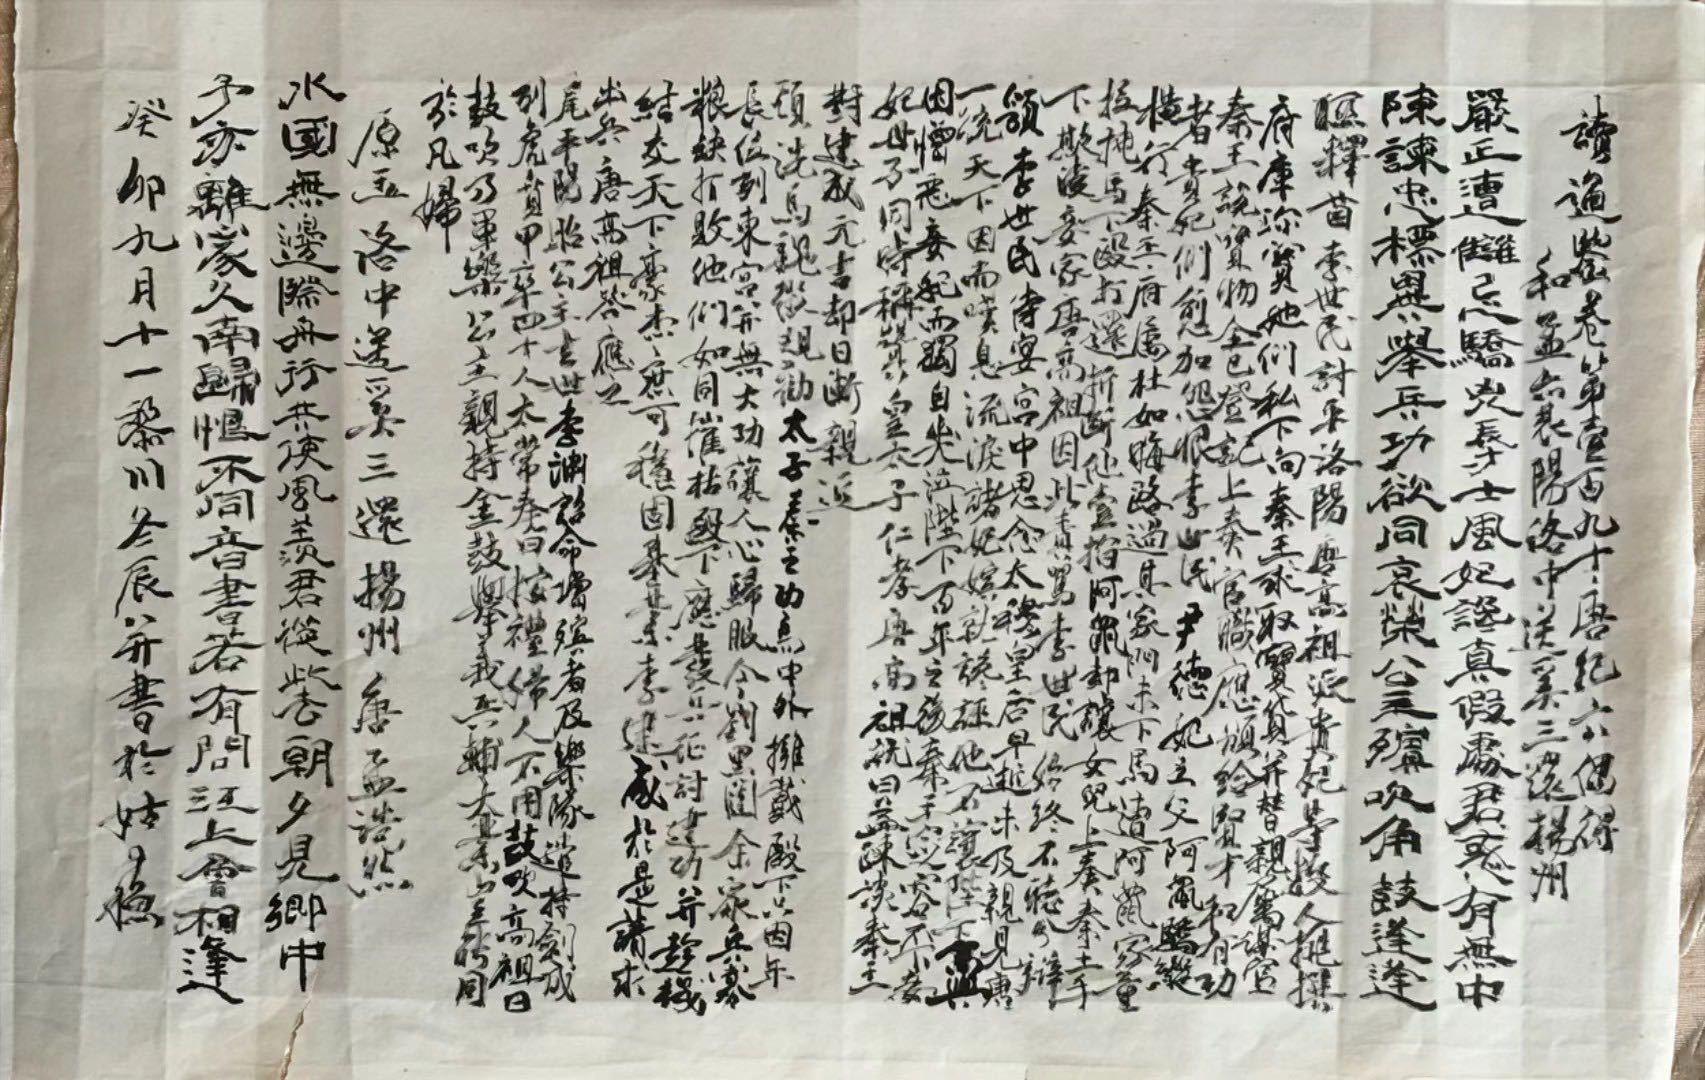 讀通鑒卷第壹百九十唐紀六偶得
和孟六襄陽洛中送奚三還揚州
嚴正遭讎忌驕兇辱士風妃讒真假處君惑有無中
陳諫忠標異舉兵功欲同哀榮公主殯吹角鼓逢逢
驅釋 李世民討平洛陽唐高祖派貴妃等數人挑撰
府庫珍寶她們私下向秦王求取寶貨并替親屬謀官
秦王說寶物全已登記上奏官職應頒給賢才和有功
者貴妃們愈加怨恨李世民 尹德妃之父阿鼠驕縱
橫行秦王府屬杜如晦路過其家門未下馬遭阿鼠家童
拉拽馬下毆打還折斷他壹指阿鼠却讓女兒上奏秦王手
下欺凌妾家唐高祖因此責罵李世民始終不聽分辯
領 李世民待宴宮中思念太穆皇后早逝未及親見唐
一統天下因而嘆息流淚諸妃嬪就讒誣他不讓陛下高興
因憎惡妾妃而獨自哭泣陛下百年之後秦王定容不下妾
妃母子同時稱贊皇太子仁孝唐高祖說曰益疎淡秦王
對建成元吉却日漸親近
頭 洗馬魏徵規勸太子秦王功高中外擁戴殿下只因年
長位列東宮并無大功讓人心歸服今劉黑闥余眾兵寡
糧缺打敗他們如同摧枯殿下應發兵征討建功并趁機
結交天下豪杰庶可穩固基業李建成於是請求
出兵唐高祖答應之
尾 平陽昭公主去世李淵詔命增殯者及樂隊遣持劍成
列虎賁甲卒四十人太常奏曰按禮婦人不用鼓吹高祖曰
鼓吹乃軍樂公主親持金鼓興舉義兵輔大業豈可同
於凡婦
原玉 洛中送奚三還揚州 唐孟浩然
水國無邊際舟行共使風羨君從此去朝夕見鄉中
予亦離家久南歸恨不同音書若有問江上會相逢
癸卯九月十一黎川 辰 并書於姑